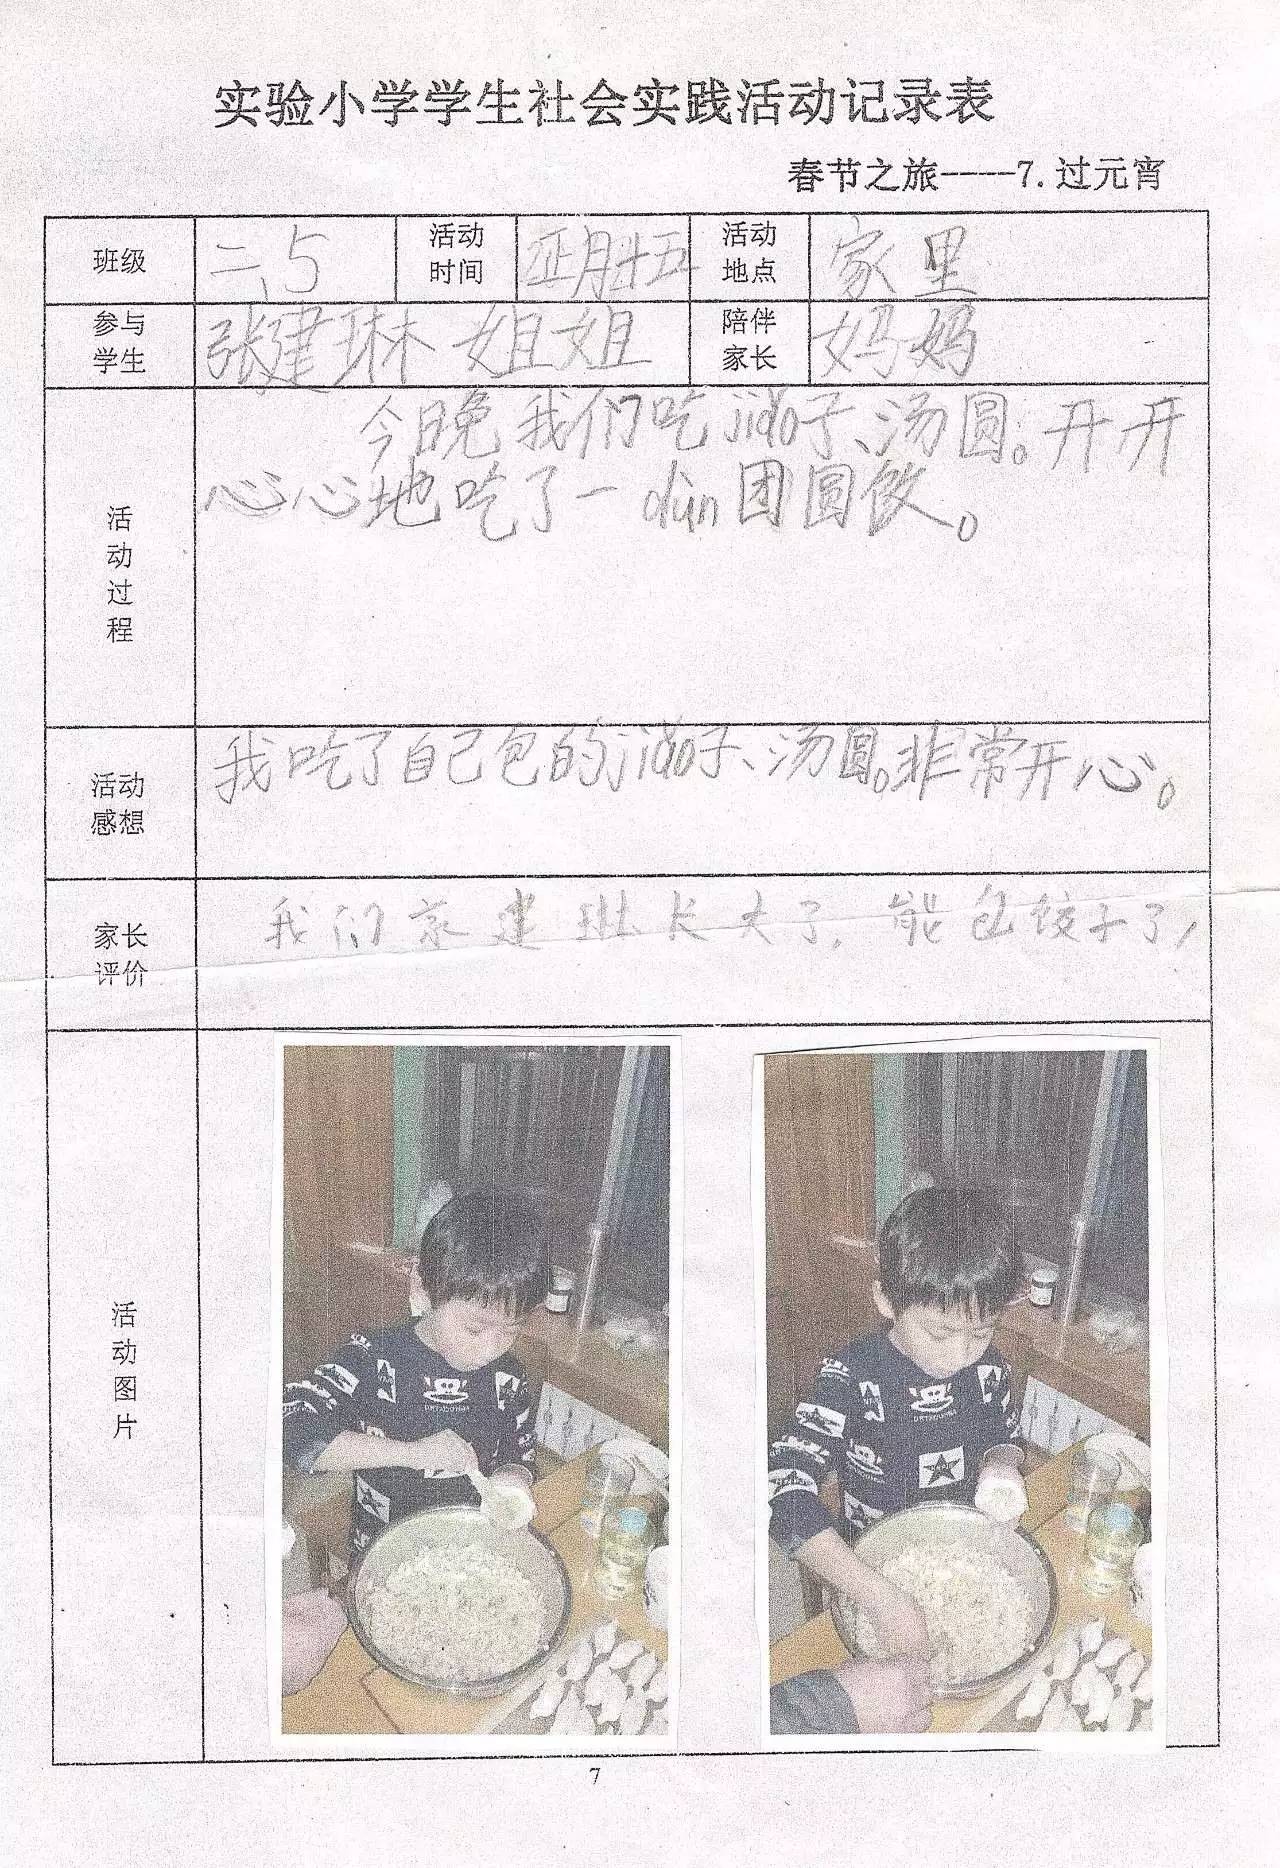 实验小学学生社会实践活动记录表
春节之旅----7.过元宵
班级 二、5 活动时间 正月十五 活动地点 家里
参与学生 张建琳 姐姐 陪伴家长 妈妈
活动过程
今日晚我们吃jiǎo子、汤圆。开开
心心地吃了一dùn团圆饭。
活动感想
我吃了自己包的jiǎo子、汤圆。非常开心。
家长评价
我们家建琳长大了，能包饺子了，
活动图片
7